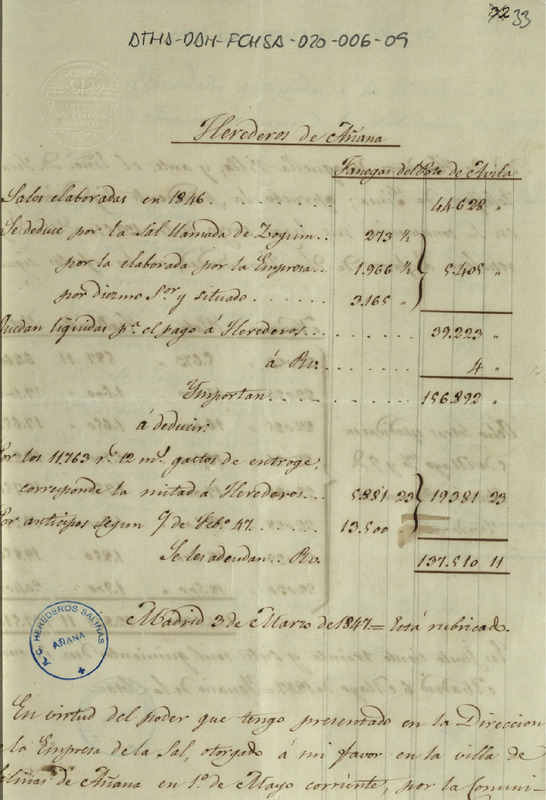 32 33
ATHA-DAH-FCHSA-020-006-09
Herederos de Añana
Fanegas del Pote de Avila
Sales elaboradas en 1846 44.628 "
Se deduce por la Sal llamada de 273 ½
por la elaborada por la Empresa 1.966 ½ 5.405 "
por diezmo Sor y situado 3165 "
Quedan liquidas pa el pago á Herederos 39.223 "
á Rv. 4 "
Importan 156.892 "
á deducir:
Por los 11.763 rs 12 ms gastos de entroge,
corresponde la mitad á Herederos 5.881 23 19.381 23
Por anticipos segun de Febo 47 13.500
Se les adeudan Rv. 137.510 11
Madrid 3 de Marzo de 1847 = Está rubricado.
A. C. HEREDEROS SALINAS
AÑANA
En virtud del poder que tengo presentado en la Direccion
la Empresa de la Sal, otorgado á mi favor en la villa de
Salinas de Añana en 1º de Mayo corriente, por la Comuni-